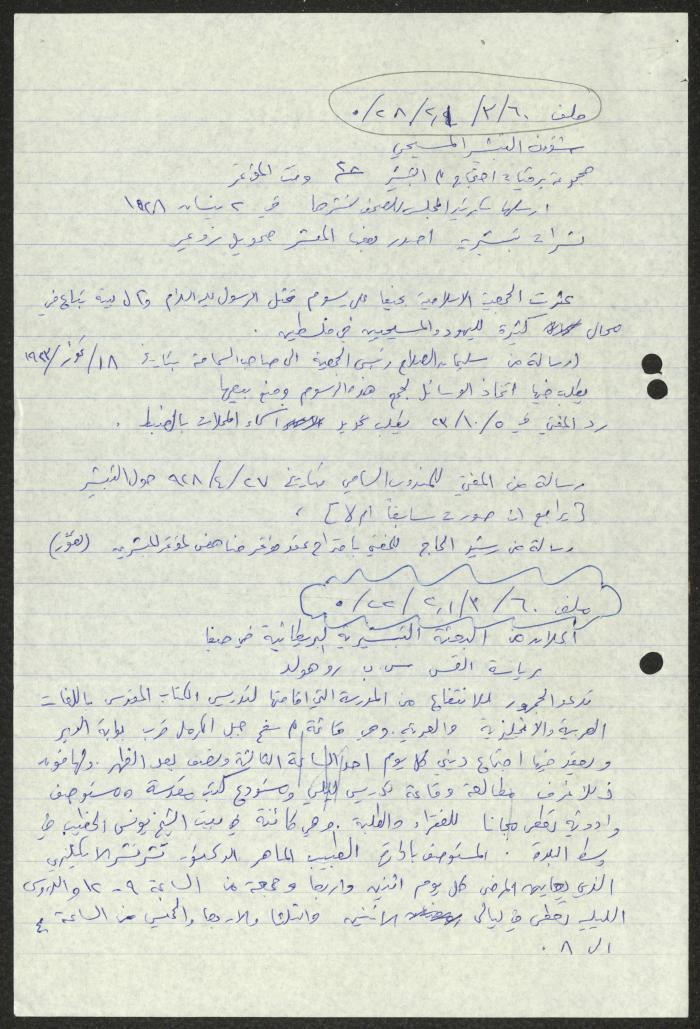 ملف ٦٠/٣/٢,٤/٢٨/٠
شؤون التبشير المسيحي
مجموعة برقيات احتجاج التبشير وقت المؤتمر
ارسلها المجلس للصحف لنشرها في ٢ نيسان ١٩٢٨
نشرات تبشيرية اصدر بعضها المبشر صموئيل زويمر
عثرت الجمعية الاسلامية بحيفا على رسوم تمثل الرسول عليه السلام وآل بيته تباع في
محال كثيرة لليهود والمسيحيين في فلسطين .
ارسالة من سليمان الصلاح رئيس الجمعية الى صاحب السماحة بتاريخ ١٨/تموز/١٩٢٣
يطلب فيها اتخاذ الوسائل لجمع هذه الرسوم ومنع بيعها
رد المفتي في ٢٣/١٠/٥ يطلب تحديد اسماء المحلات بالضبط .
رسالة من المفتي للمندوب السامي بتاريخ ٩٢٨/٤/٢٧ حول التبشير
[يراجع ان صورت سابقاً ام لا]
رسالة من رشيد الحاج للمفتي باقتراح عقد مؤتمر مناهض لمؤتمر المبشرين (تصوّر)
ملف ٦٠/٣/٢,١/٢٢/٠
اعلان من البعثة التبشيرية البريطانية في حيفا
برئاسة القس س ب روهولد
تدعو الجمهور للانتفاع من المدرسة التي اقامتها لتدريس الكتاب المقدس باللغات
العربية والانجليزية والعبرية . وهي قائمة سفح جبل الكرمل قرب بوابة الدير
ويعقد فيها اجتماع ديني كل يوم احد الساعة الثالثة ونصف بعد الظهر .
غرف مطالعة وقاعة تدريس ليلي ومستودع كتب مقدسة مستوصف
وادوية تعطى مجانا للفقراء والطلبة . وهي كائنة في بيت الشيخ يونس الخطيب في
وسط البلدة . المستوصف بادارة الطبيب الماهر الدكتور الانكليزي
الذي يعاين المرضى كل يوم اثنين واربعا وجمعة من الساعة ٩-١٢ والدروس
الليلية تعطى في ليالي الاثنين والثلاثا والاربعا والخميس من الساعة ٤
الى ٨ .